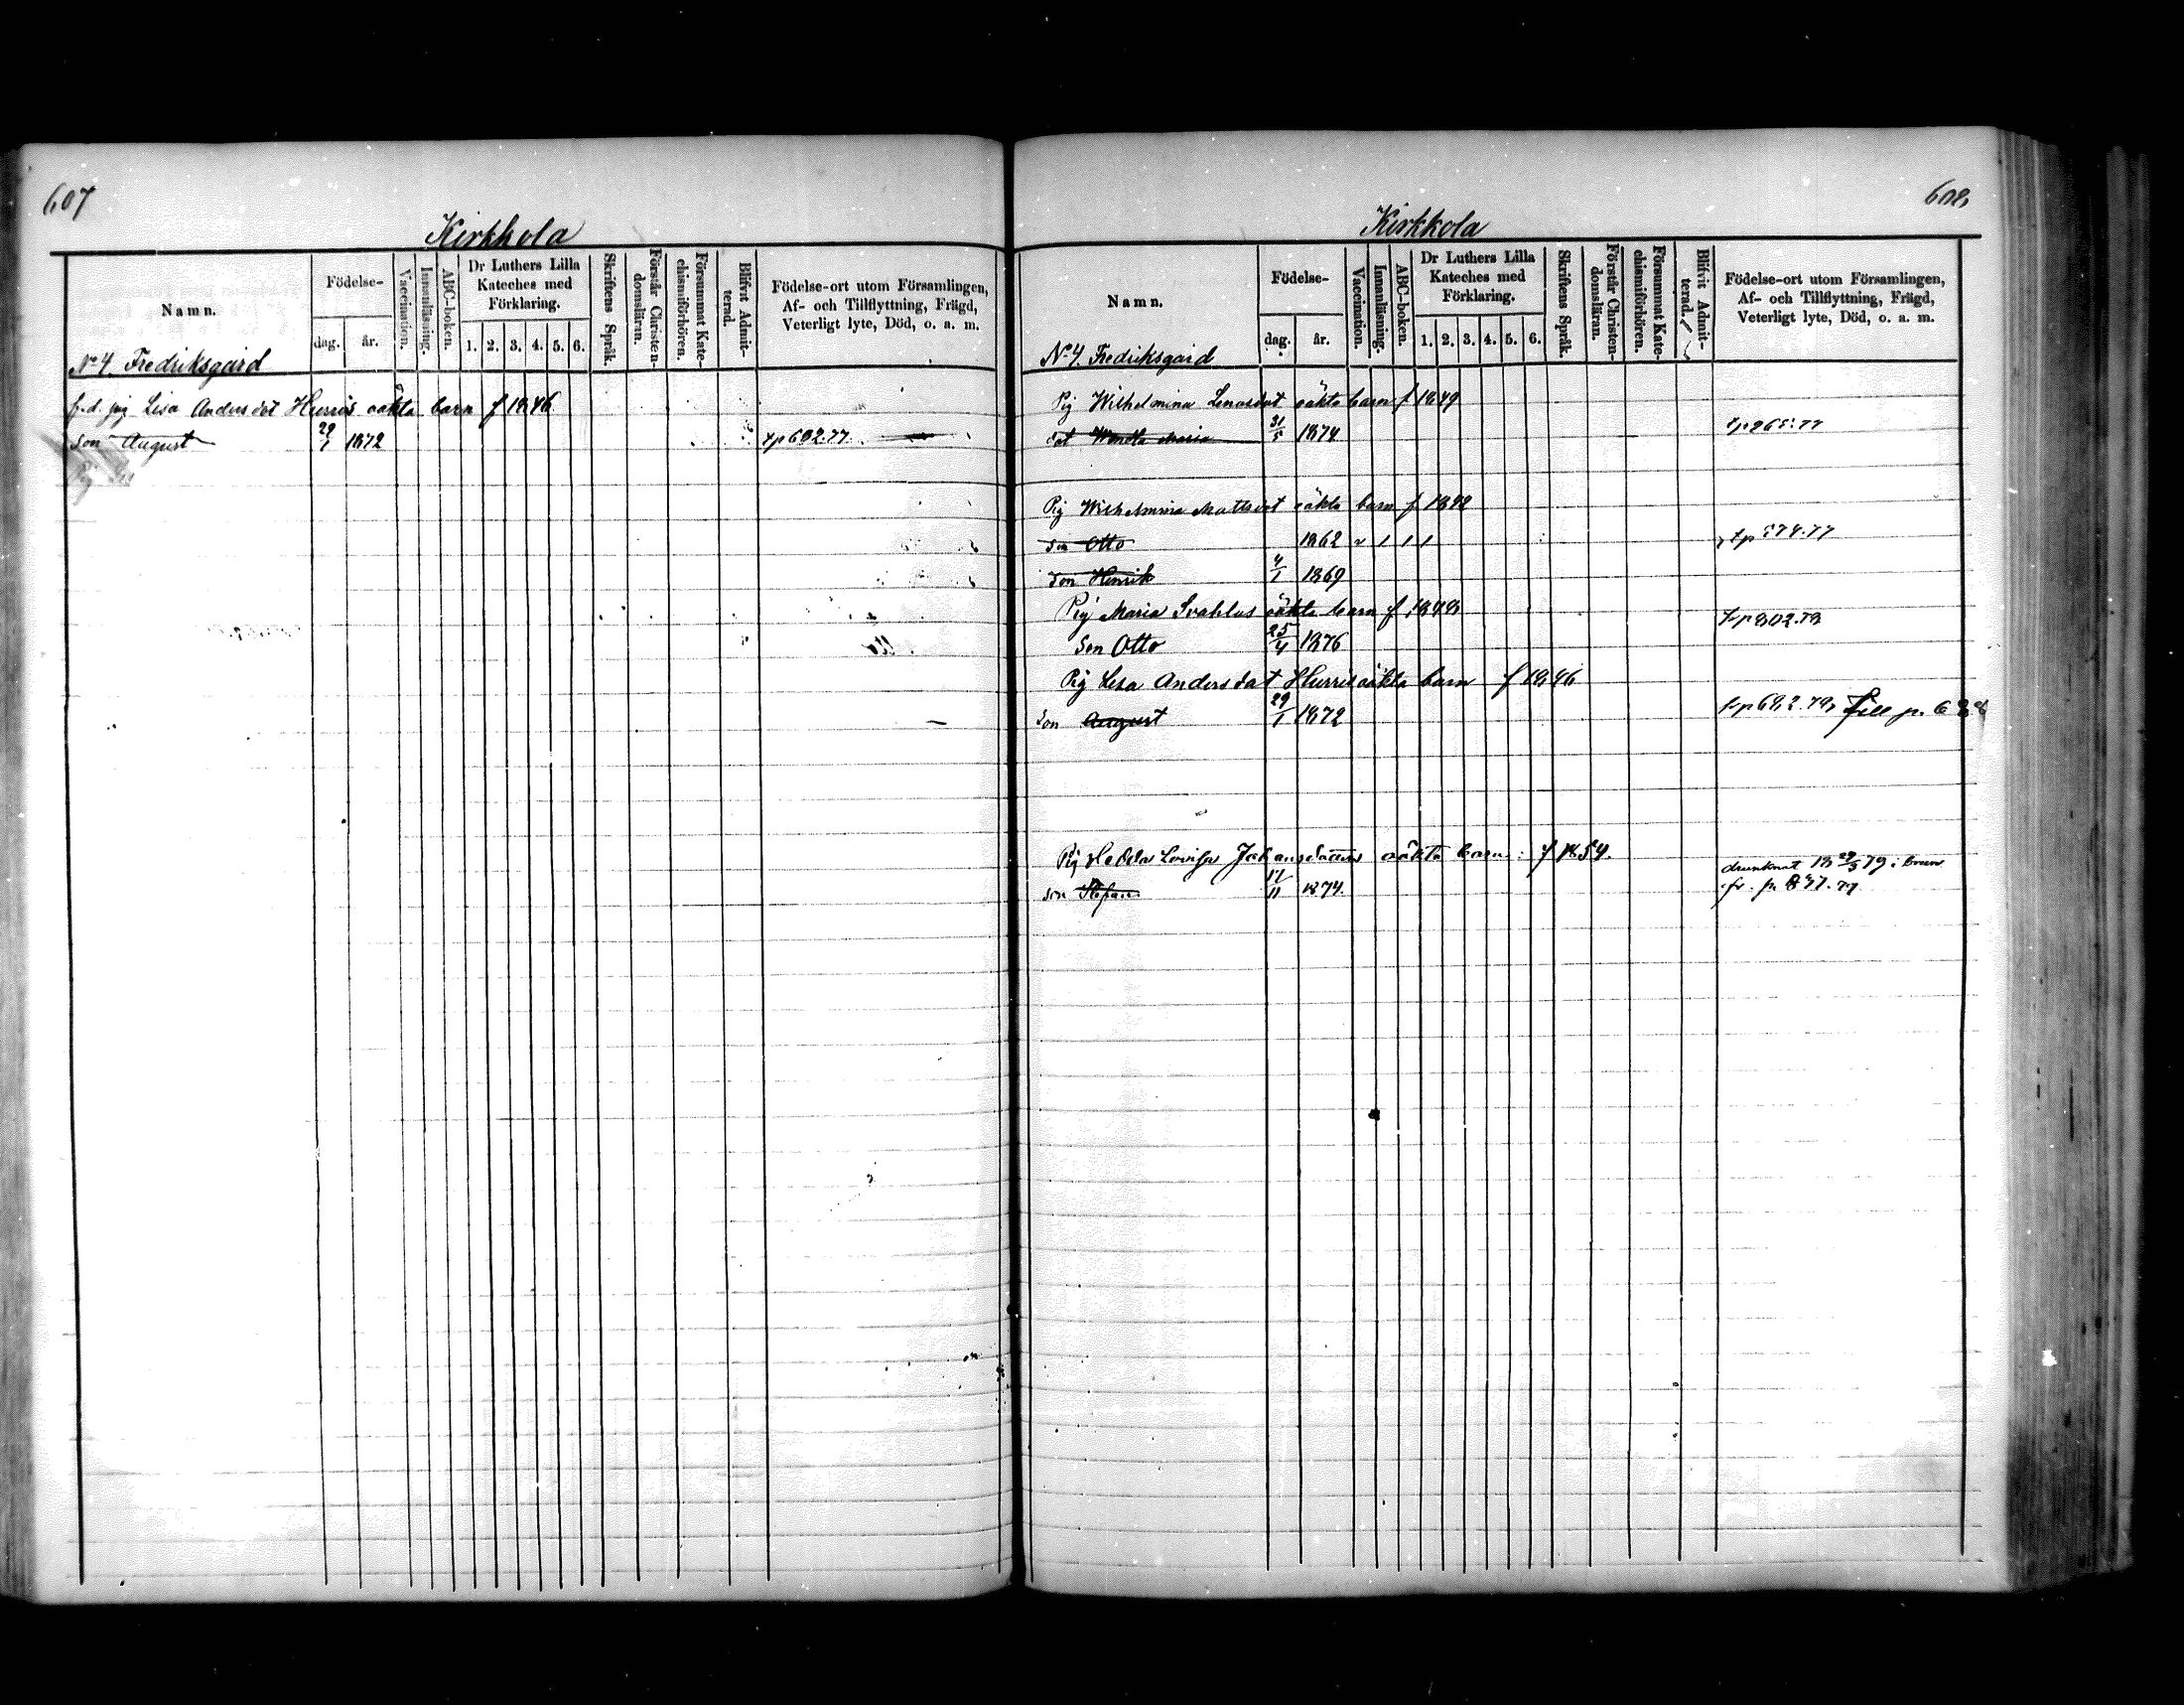 607
Kirkkola
Namn.
Födelse-
dag.
år.
Vaccination.
Innanläsning.
ABC-boken.
Dr Luthers Lilla
Kateches med
Förklaring.
1. 2. 3. 4. 5. 6.
Skriftens Språk.
Förstår Christen-
domsläran.
Försummat Kate-
chismiförhören.
Blifvit Admit-
terad.
Födelse-ort utom Församlingen,
Af- och Tillflyttning, Frägd,
Veterligt lyte, Död, o. a. m.
No 4. Fredriksgård
f.d. pig Lisa Andersdot Hurris oäkta barn f 1846
Son August 29/1 1872 tp 692.77
Pig
608
Kirkkola
Namn.
Födelse-
dag.
år.
Vaccination.
Innanläsning.
ABC-boken.
Dr Luthers Lilla
Kateches med
Förklaring.
1. 2. 3. 4. 5. 6.
Skriftens Språk.
Förstår Christen-
domsläran.
Försummat Kate-
chismiförhören.
Blifvit Admit-
terad.
Födelse-ort utom Församlingen,
Af- och Tillflyttning, Frägd,
Veterligt lyte, Död, o. a. m.
No 4. Fredriksgård
Pig Wilhelmina oäkta barn f 1849
dat Wendla Maria 31/5 1874 tp 265.77
Pig Wilhelmina Mattsdot oäkta barn f 1842
Son Otto 1862 v 1 1 1 tp 574.77
Son Henrik 4/1 1869
Pig Maria oäkta barn f 1848
Son Otto 25/4 1876 tp 802.78
Pig Lisa Andersdot Hurris oäkta barn f 1846
Son August 29/1 1872 tp 692.79, Till p.
Pig Hedda Lovisa oäkta barn: f 1854.
drunknat 18 29/3 79 i
son Stefan 17/11 1874. fr. p. 877.77